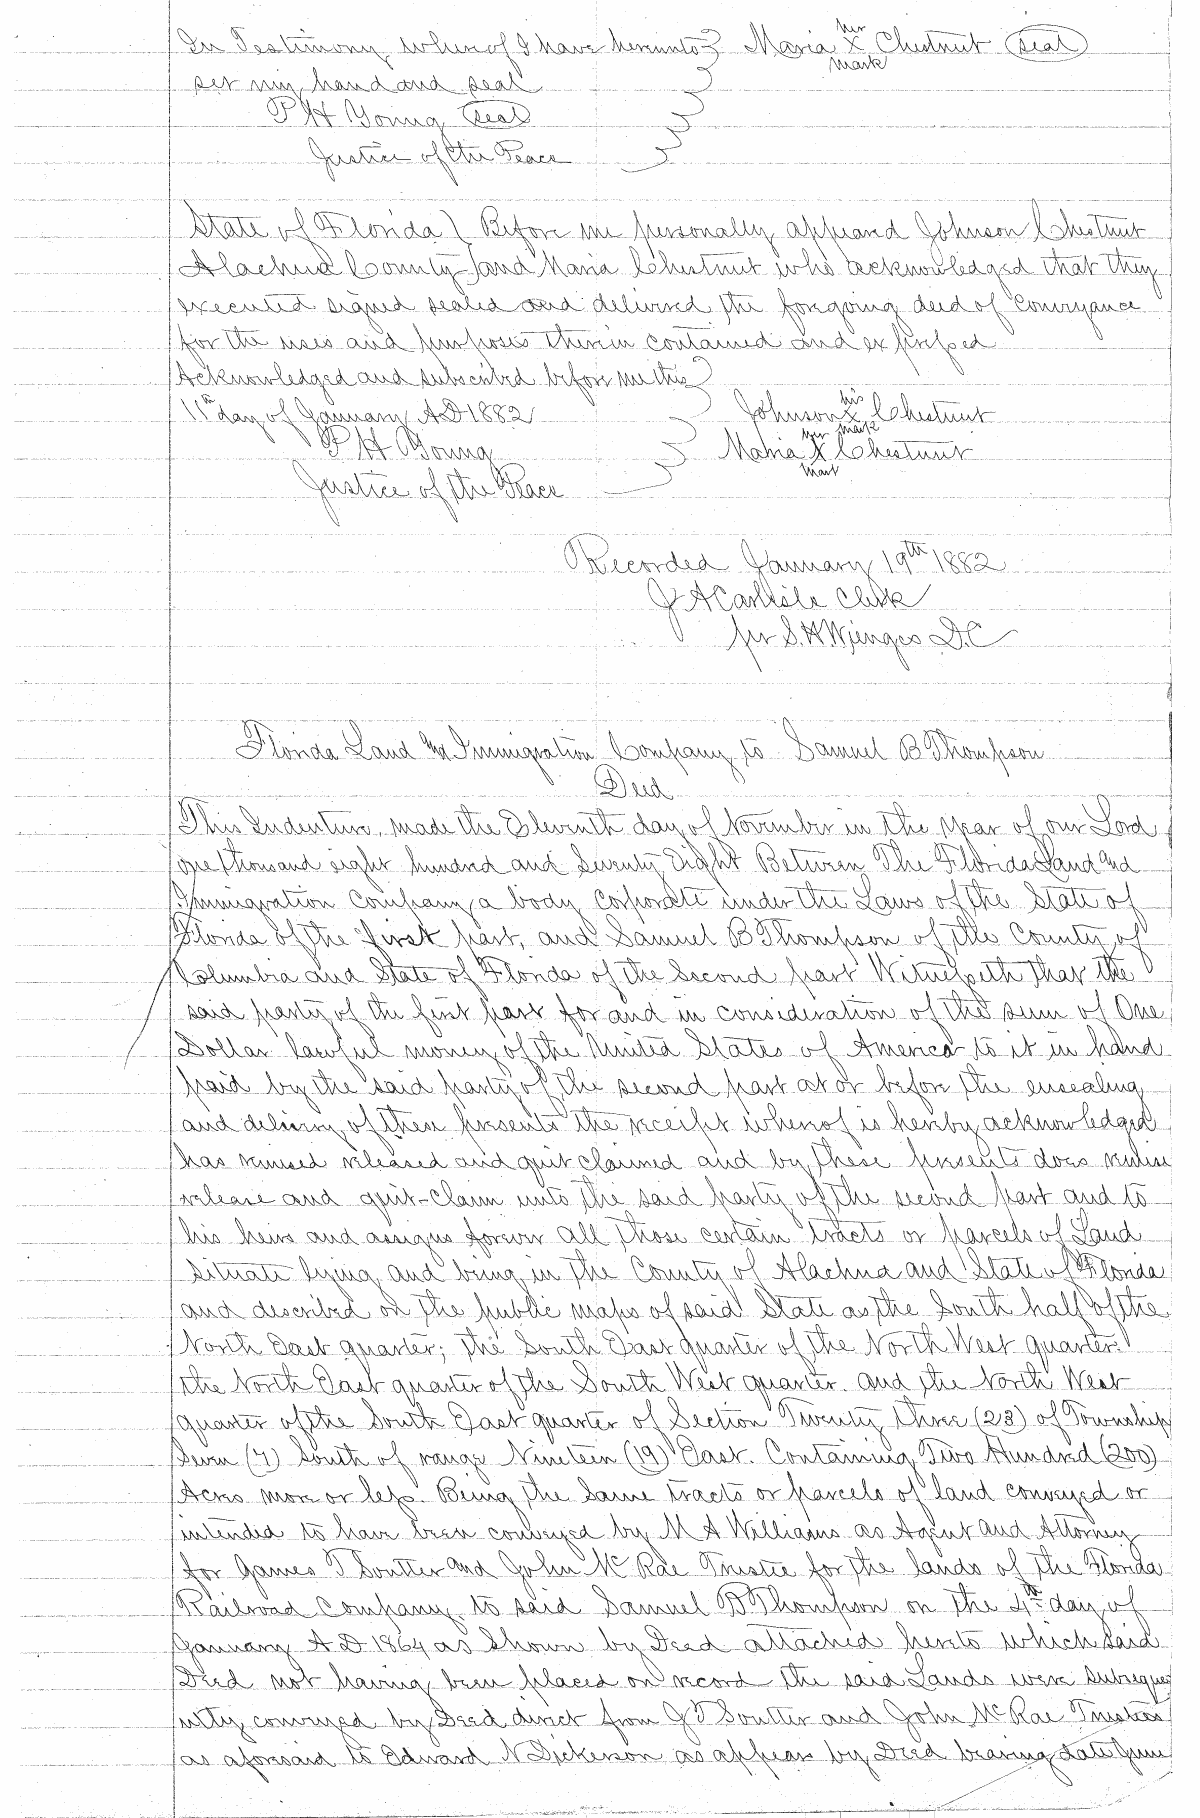 In Testimony whereof I have hereunto } Maria her X mark Chestnut (seal)
set my hand and seal
P H Young (seal)
Justice of the Peace
State of Florida } Before me personally appeared Johnson Chestnut
Alachua County } and Maria Chestnut who acknowledged that they
executed signed sealed and delivered the foregoing deed of Conveyance
for the uses and purposes therein contained and expressed
Acknowledged and subscribed before me this
11th day of January AD 1882 Johnson his X mark Chestnut
P H Young Maria her X mark Chestnut
Justice of the Peace
Recorded January 19th 1882
J A Carlisle Clerk
per S. H. Wienges D.C
Florida Land and Immigration Company to Samuel B Thompson
Deed
This Indenture, made the Eleventh day of November in the year of our Lord
one thousand eight hundred and Seventy Eight Between The Florida Land and
Immigration Company a body corporate under the Laws of the State of
Florida of the first part, and Samuel B Thompson of the County of
Columbia and State of Florida of the Second part Witnesseth that the
said party of the first part for and in consideration of the sum of One
Dollar lawful money of the United States of America to it in hand
paid by the said party of the second part at or before the ensealing
and delivery of these presents the receipt whereof is hereby acknowledged
has remised released and quit claimed and by these presents does remise
release and quit-claim unto the said party of the second part and to
his heirs and assigns forever all those certain tracts or parcels of Land
situate lying and being in the County of Alachua and State of Florida
and described on the public maps of said State as the South half of the
North East quarter; the South East quarter of the North West quarter.
the North East quarter of the South West quarter. and the North West
quarter of the South East quarter of Section Twenty three (23) of Township
Seven (7) South of range Nineteen (19) East. Containing Two Hundred (200)
Acres more or less. Being the same tracts or parcels of land conveyed or
intended to have been conveyed by M A Williams as Agent and Attorney
for James T Soutter and John McRae Trustee for the lands of the Florida
Railroad Company to said Samuel B Thompson on the 4th day of
January A D 1864 as shown by Deed attached hereto which said
Deed not having been placed on record the said Lands were subseque
ntly conveyed by Deed direct from J T Soutter and John McRae Trustees
as aforesaid to Edward N Dickerson as appears by Deed bearing date June